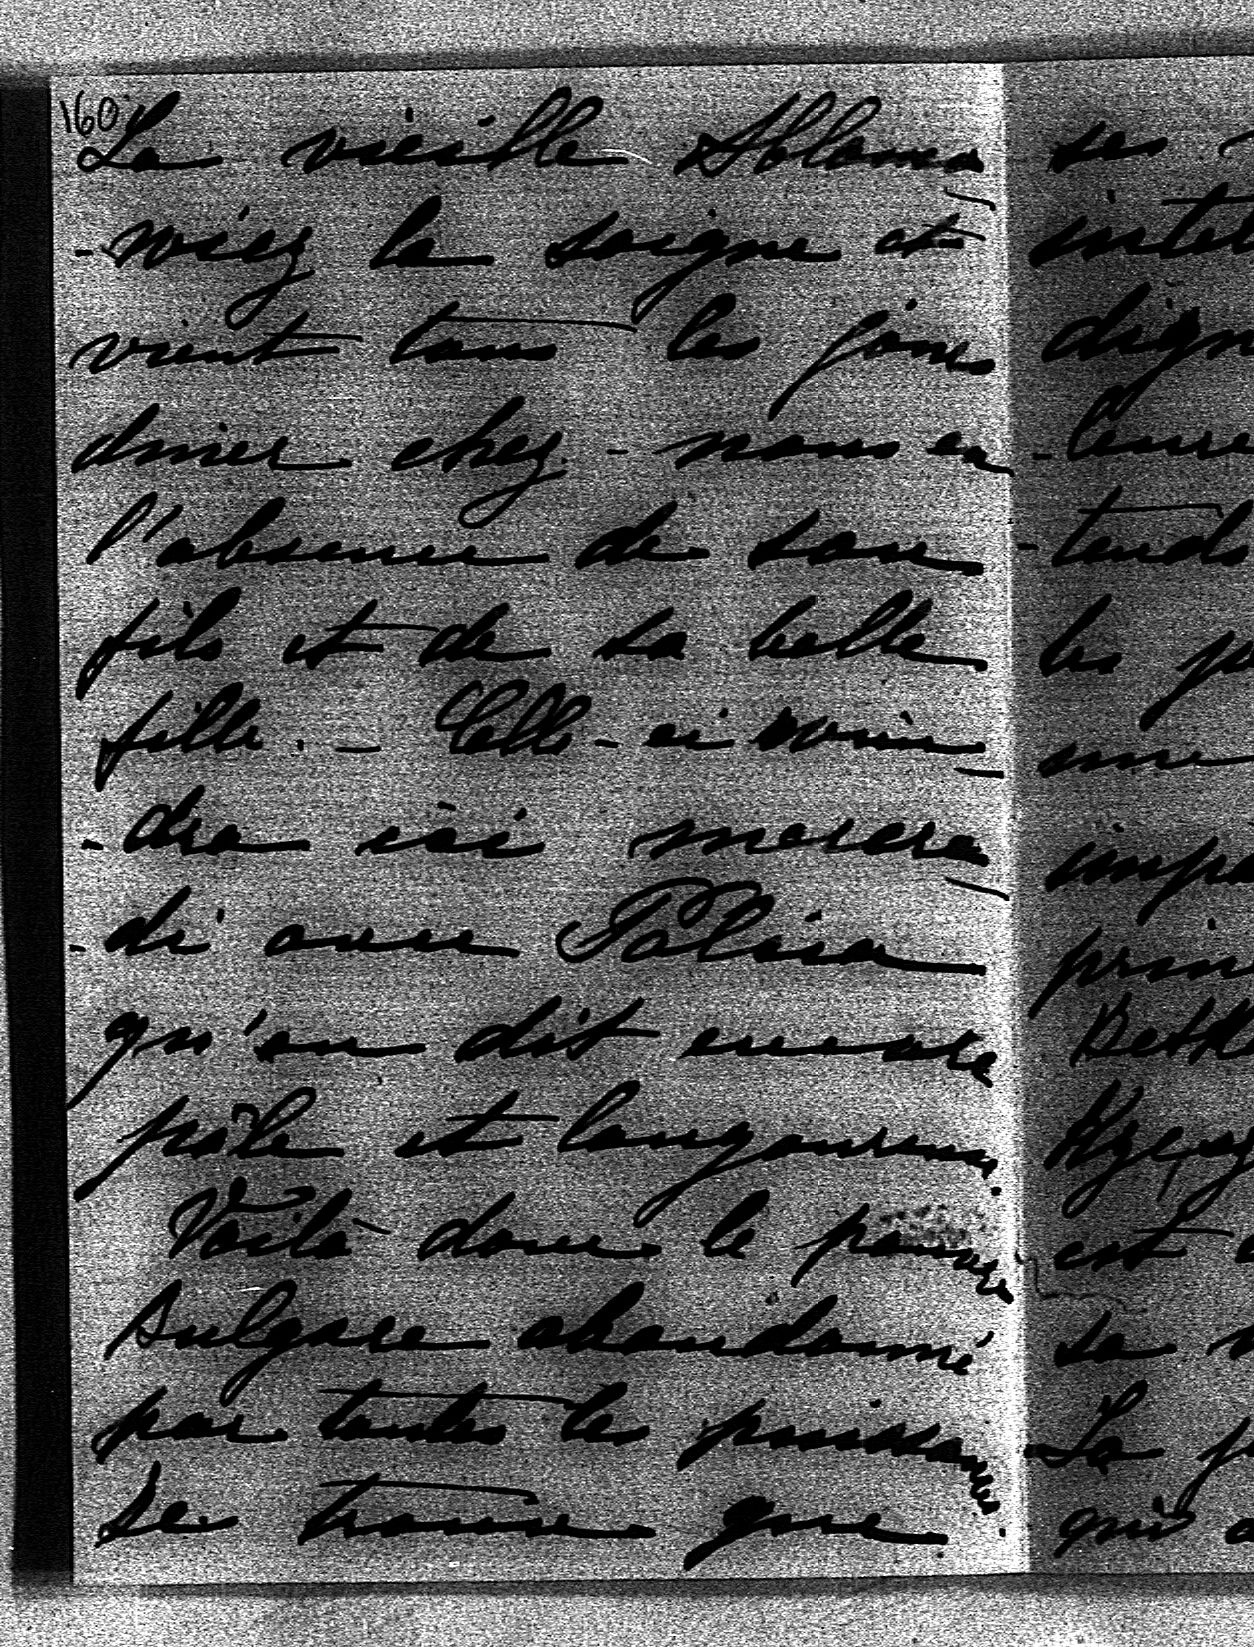 160
La vieille Ablamo
-wicz la soigne et
vient tous les jours
diner chez-nous en
l'absence de son
fils et de sa belle
fille. - Celle-ci vien
-dra ici mercre
-di avec
qu'on dit encore
pâle et langoureux.
Voilà donc le pauvre
Bulgare abandonné
par toutes les puissances.
Je trouve que
ses
intel
dign
-leure
-tends
les p
une
impo
prin
est
sa
La p
qui a